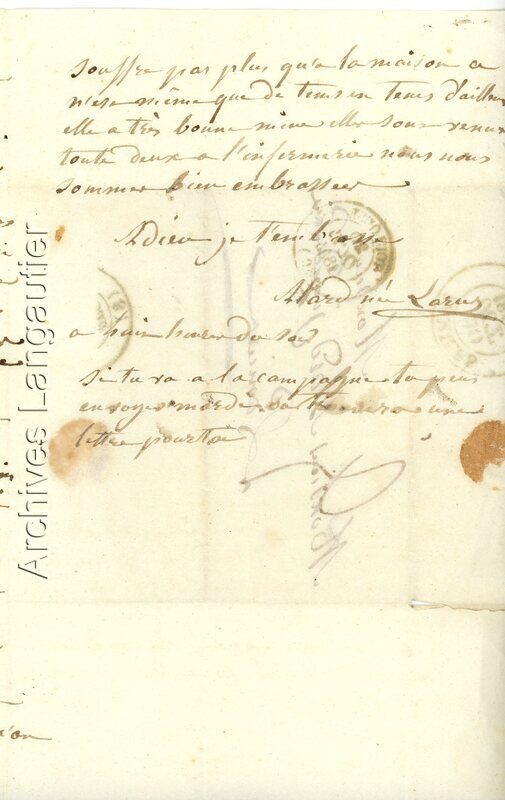 souffre pas plus qu'a la maison ce
n'est même que de tems en tems d'ailleurs
elle a très bonne mine elle sont venue
toute deux a l'infermerie nous nous
sommes bien embrassées
Adieu je t'embrasse
Alard née
a huit heures du soir
si tu va a la campagne tu peus
envoyer mardi on trouvera une
lettre pour toi
Archives Langautier